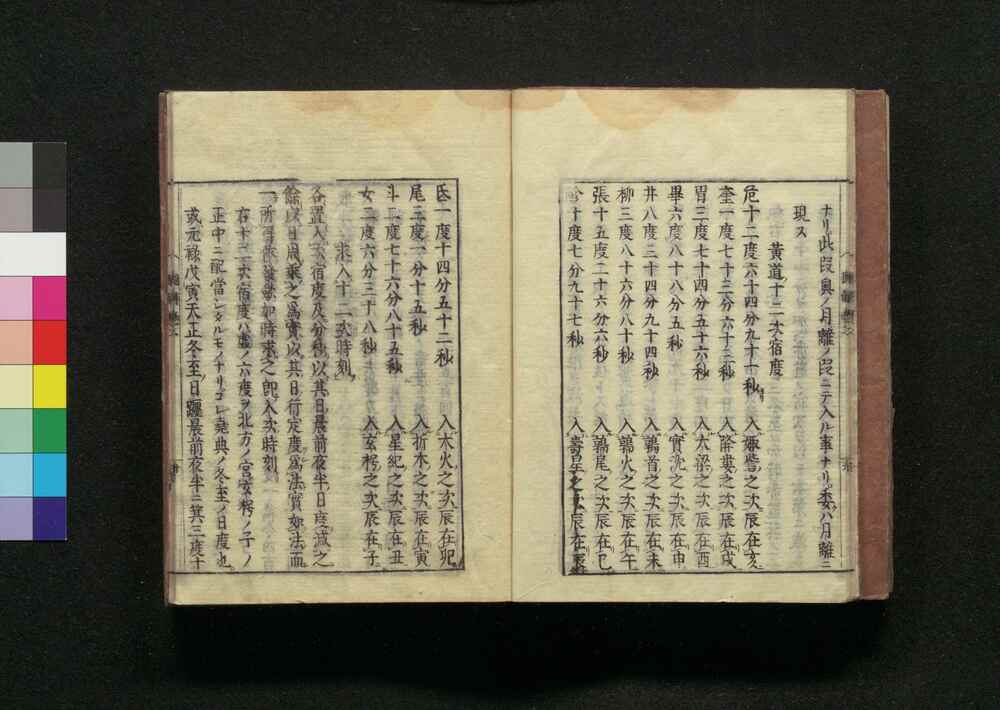 ナリ此段奥ノ月離ノ段ニテ入ル事ナリ委ハ月離ニ
現ス
黄道十二次宿度
危十二度六十四分九十一秒 入娵訾之次辰在亥
奎一度七十三分六十三秒 入降婁之次辰在戌
胃三度七十四分五十六秒 入大梁之次辰在酉
畢六度八十八分五秒 入實沈之次辰在申
井八度三十四分九十四秒 入鶉首之次辰在未
柳三度八十六分八十秒 入鶉火之次辰在午
張十五度二十六分六秒 入鶉尾之次辰在巳
軫十度七分九十七秒 入壽星之次辰在辰
氐一度十四分五十二秒 入大火之次辰在卯
尾三度一分十五秒 入析木之次辰在寅
斗三度七十六分八十五秒 入星紀之次辰在丑
女二度六分三十八秒 入玄枵之次辰在子
求入十二次時刻
各置入次宿度及分秒以其日晨前夜半日度減之
餘以日周乗之爲實以其日行定度爲法實如法而
一所得依發斂加時求之即入次時刻
右十二次宿度ハ虚ノ六度ヲ北方ノ宮玄枵ノ子ノ
正中ニ配當シタルモノナリコレ堯典ノ冬至ノ日度也
或元禄戊寅天正冬至日躔晨前夜半ニ箕三度十